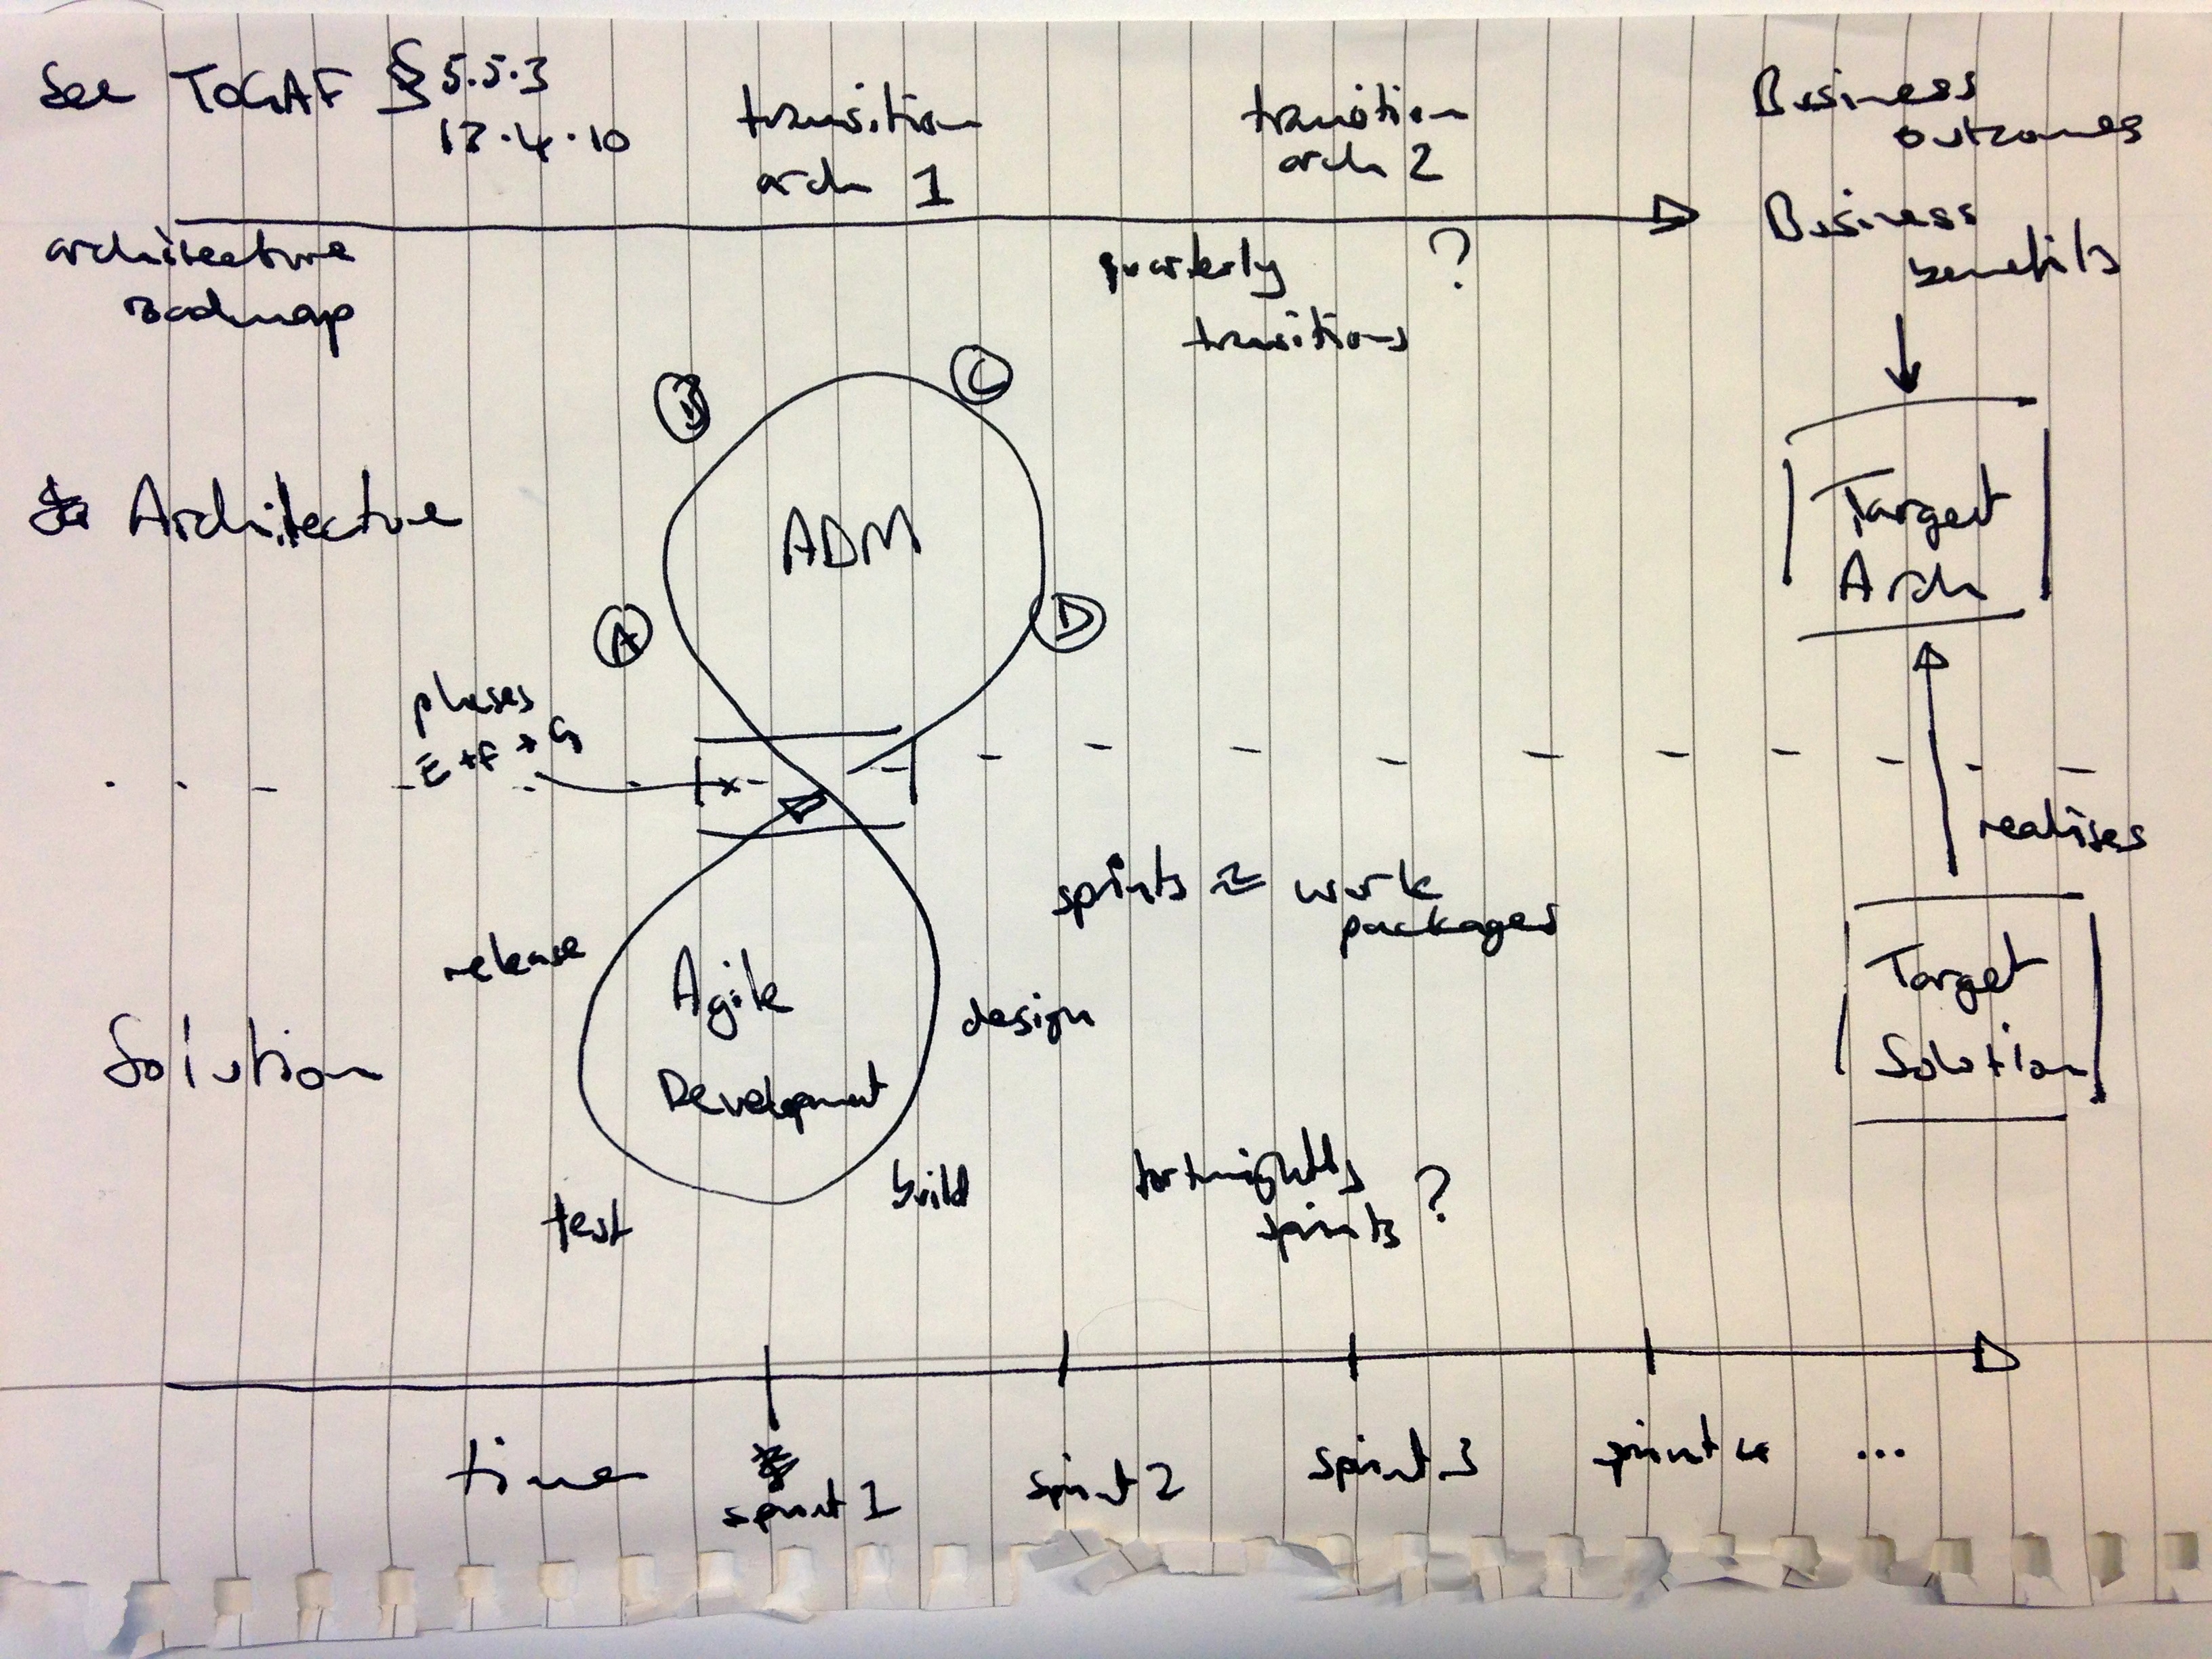 See TOGAF § 5.5.3
transition
arch 1
transition
arch 2
Business
outcomes
Business
benefits
architecture
roadmap
quarterly ?
transitions
B
C
Architecture
ADM
Target
Arch
A
D
phases
E + F → G
realises
sprints ≈ work
packages
release
Agile
Development
design
Target
Solution
Solution
test
build
fortnightly
sprints ?
time
sprint 1
sprint 2
sprint 3
sprint 4
...